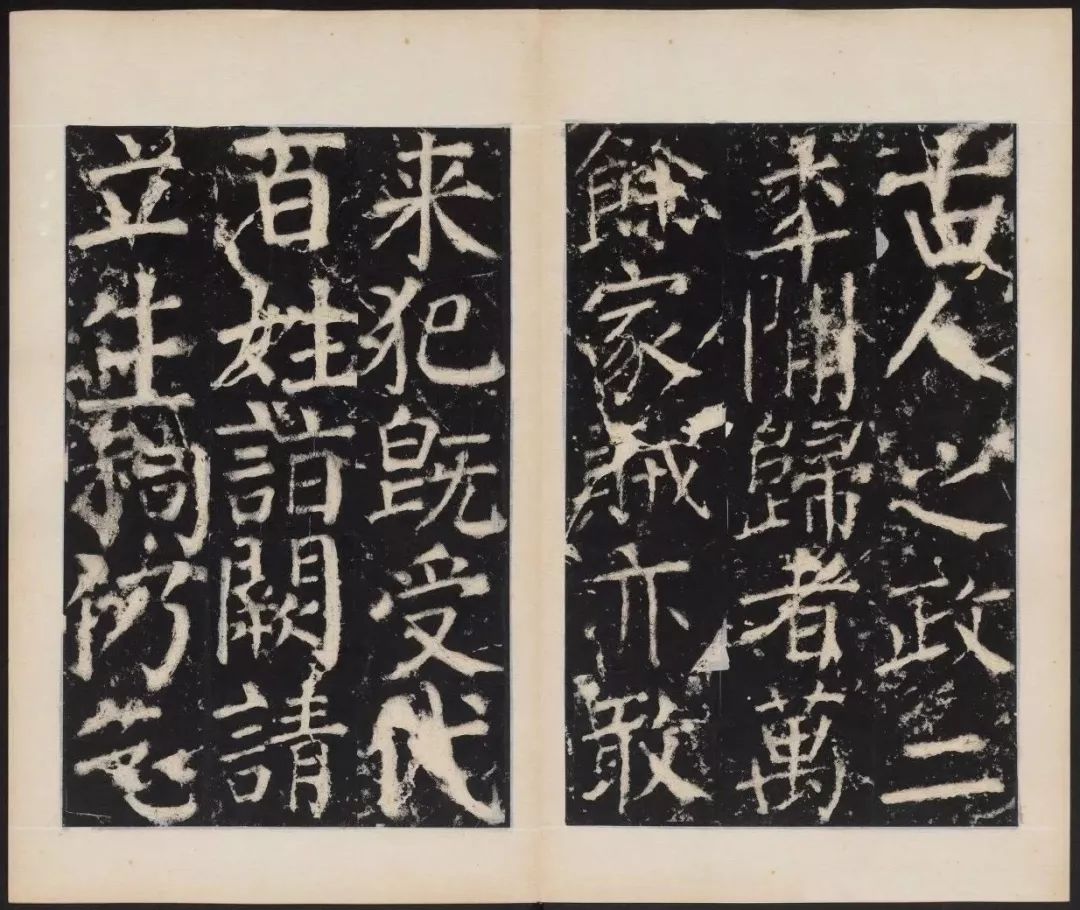 古人之政二
年閒歸者萬
餘家賊亦敢
来犯既受代
百姓詣闕請
立生祠仍乞